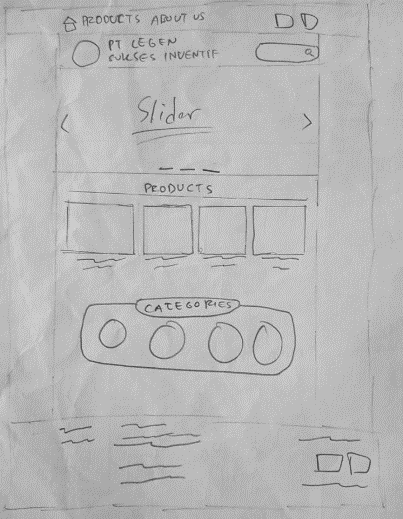 PRODUCTS ABOUT US
PT LEGEN
SUKSES INVENTIF
Slider
PRODUCTS
CATEGORIES